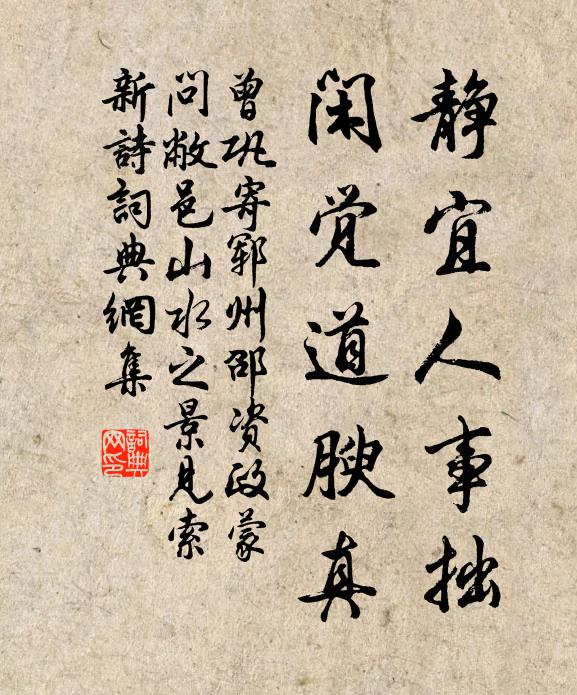 静宜人事拙
闲觉道腴真
曾巩寄郓州邵资政蒙
问敝邑山水之景见索
新詩詞典網集
詞典
网印